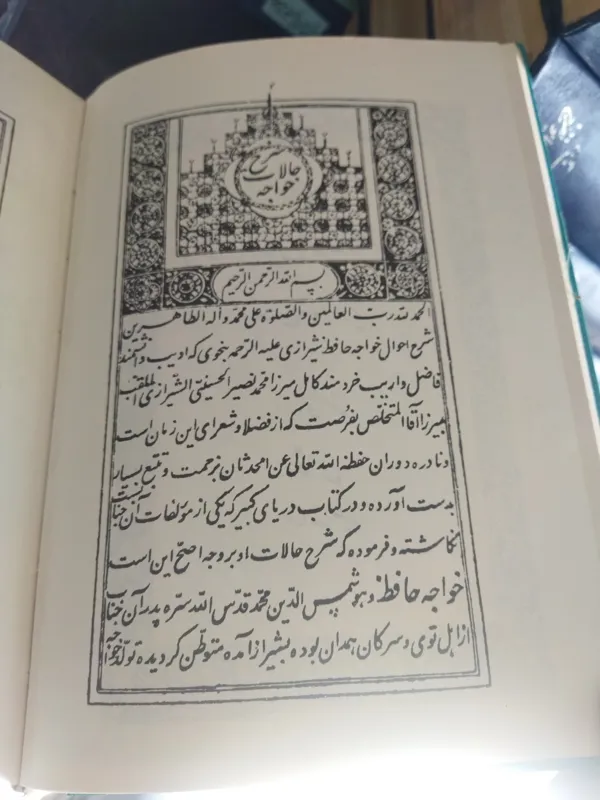 شرح
حالات
خواجه
بسم الله الرحمن الرحیم
الحمد لله رب العالمین والصلوة علی محمد وآله الطاهرین
شرح احوال خواجه حافظ شیرازی علیه الرحمه بنحوی که ادیب دانشمند
فاضل واریب خردمند کامل میرزا محمد نصیر الحسینی الشیرازی الملقب
بمیرزا آقا المتخلص بفرصت که از فضلا وشعرای این زمان است
ونادره دوران حفظه الله تعالی عن الحدثان بزحمت وتتبع بسیار
بدست آورده ودر کتاب دریای کبیر که یکی از مؤلفات آن جناب است
نگاشته وفرموده که شرح حالات او بر وجه اصح این است
خواجه حافظ وهو شمس الدین محمد قدس الله سره پدر آن جناب
از اهل توی وسرکان همدان بوده بشیراز آمده متوطن گردیده تولد خواجه